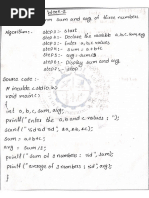 Week-2
sum and avg of three numbers
Algorithm:- Step 1:- Start
Step 2:- Declare the variable a,b,c,sum,avg
Step 3:- Enter a,b,c values
Step 4:- sum=a+b+c
Step 5:- Display sum and avg
stop
Source code:-
# include <stdio.h>
void main()
int a,b,c,sum,avg;
printf("Enter the a,b and c values :");
scanf("%d %d %d", &a,&b,&c);
sum = a+b+c;
avg = sum/3;
printf("sum of 3 numbers : %d", sum);
printf("average of 3 numbers : %d", avg);